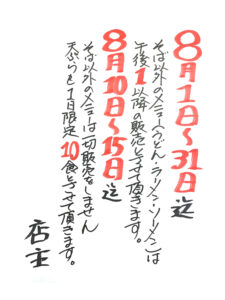 8月1日〜31日迄
そば以外のメニュー(うどん・ラーメン・ソーメン)は
午後1以降の販売とさせて頂きます。
8月10日〜15日迄
そば以外のメニューは一切販売をしません
天ぷらも1日限定10食とさせて頂きます。
店主